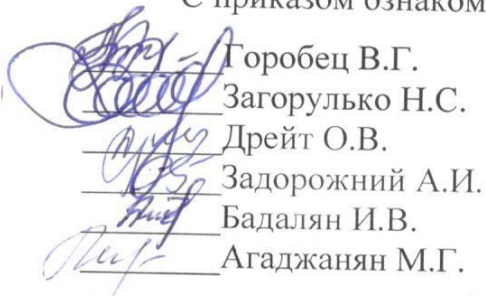 С приказом ознаком
Горобец В.Г.
Загорулько Н.С.
Дрейт О.В.
Задорожний А.И.
Бадалян И.В.
Агаджанян М.Г.